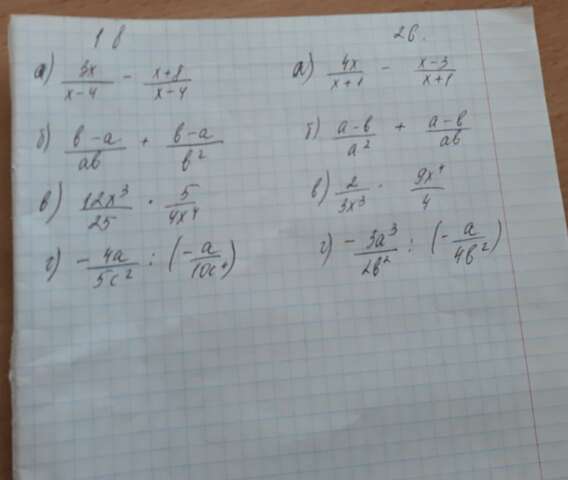 1 в
а) 3x/(x-4) - (x+8)/(x-4)
б) (в-а)/ав + (в-а)/в²
в) 12x³/25 · 5/4x⁴
г) -4a/5c² : (-a/10c⁴)
2 в.
а) 4x/(x+1) - (x-3)/(x+1)
б) (а-в)/а² + (а-в)/ав
в) 2/3x³ · 9x⁴/4
г) -3a³/2в² : (-a/4в²)